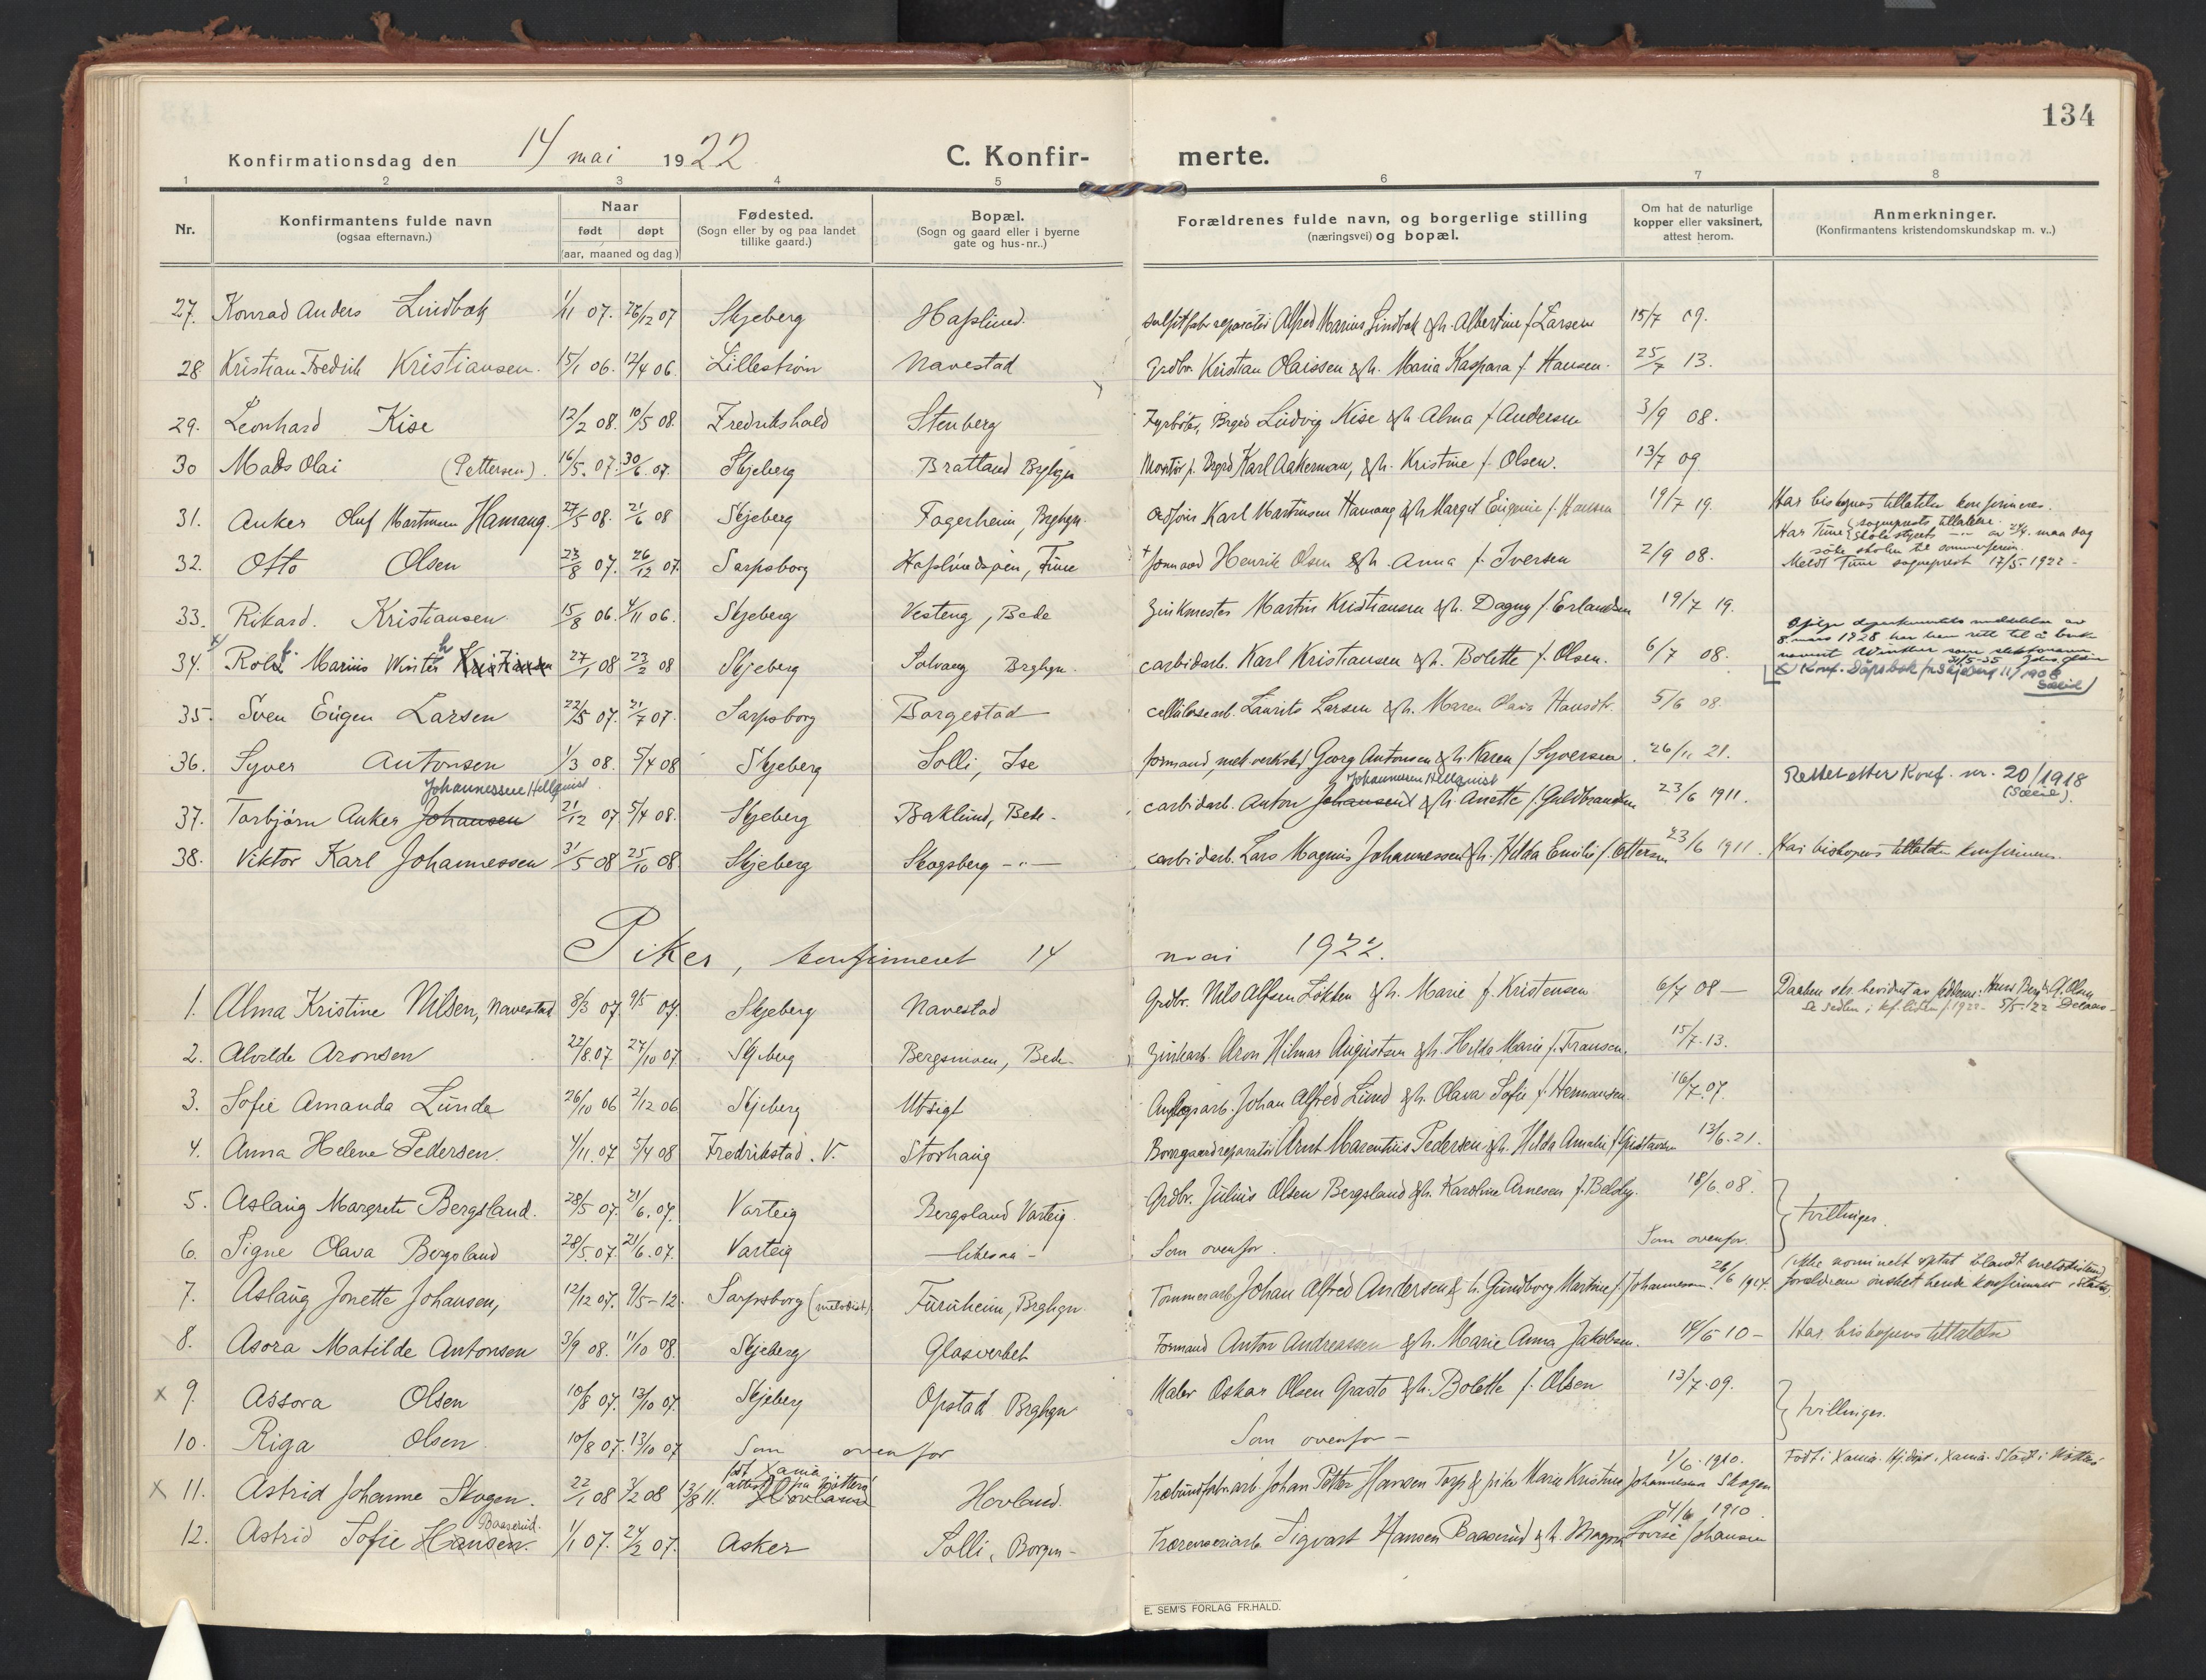 134
Konfirmationsdag den 14 mai 1922 C. Konfir- merte.
1 2 3 4 5 6 7 8
Nr. Konfirmantens fulde navn (ogsaa efternavn.) Naar født døpt (aar, maaned og dag) Fødested. (Sogn eller by og paa landet tillike gaard.) Bopæl. (Sogn og gaard eller i byerne gate og hus-nr..) Forældrenes fulde navn, og borgerlige stilling (næringsvei) og bopæl. Om hat de naturlige kopper eller vaksinert, attest herom. Anmerkninger. (Konfirmantens kristendomskundskap m. v..)
27. Konrad Anders Lindbæk 1/11 07. 26/12 07 Skjeberg Hafslund. sulfitfabr reparatör Alfred Marius Lindbæk &h. Albertine f Larsen 15/7 09.
28 Kristian Fredrik Kristiansen. 15/1 06. 12/4 06. Lillestrøm Navestad Grdbr. Kristian Olaissen &h. Maria Kaspara f. Hansen. 25/7 13.
29. Leonhard Kise 12/2 08. 10/5 08. Fredrikshald Stenberg Fyrböter, Brgrd Ludvig Kise &h Alma f Andersen 3/9 08.
30 Mads Olai (Pettersen). 16/5. 07. 30/6. 07. Skjeberg Bratland Brghgn Montör p. Brgrd Karl Aakerman, &h. Kristine f. Olsen. 13/7 09
31. Anker Oluf Martinsen Hamang. 27/5 08. 21/6 08 Skjeberg Fagerheim, Brghgn. Karl Martinsen Hamang &h Margit Eugenie f. Hansen 19/7 19. Har biskopens tillatelse konfirmeres.
32. Otto Olsen 23/8 07. 26/12 07. Sarpsborg Hafslundsøen, Tune + formand Henrik Olsen &h. Anna f. Iversen 2/9 08. Har Tune sogneprests tillatelse
skolestyrets maa dog
søke skolen til sommerferien.
Meldt Tune sogneprest 17/5-1922-
33. Rikard. Kristiansen 15/8 06. 4/11 06. Skjeberg Vesteng, Bede Zinkmester Martin Kristiansen &h. Dagny f. Erlandsen 19/7 19.
34. x) Rolf Marius Winther Kristiansen 27/1 08 23/2 08 Skjeberg Solvang Brghgn. carbidarb. Karl Kristiansen &h. Bolette f. Olsen. 6/7 08. Ifølge departementets meddelelse av
8. mars 1928 har han rett til å bruke
navnet Winther som slektsnavn.
x) Konf. Dåpsbok for Skjeberg 11/1908
35. Sven Eugen Larsen 22/5 07. 21/7 07. Sarpsborg Borgestad cellulosearb. Laurits Larsen &h. Maren Olava Hansdtr. 5/6 08.
36. Syver Antonsen 1/3 08. 5/4 08 Skjeberg Solli, Ise formand, mek. verksted Georg Antonsen &h. Karen f Syversen. 26/11 21.
Johannessen Hellquist Johannessen Hellquist
37. Torbjørn Anker Johansen 21/12 07 5/4 08. Skjeberg Baklund, Bede. carbidarb. Anton Johansen &h. Anette f. Guldbrandsen 23/6 1911. Rettet etter Konf. nr. 20/1918
38. Viktor Karl Johannessen 31/5 08 25/10 08. Skjeberg Skogsberg -"- carbidarb. Lars Magnus Johannessen &h. Hilda Emilie f. Ottersen 23/6 1911. Har biskopens tillatelse konfirmeres.
Piker, konfirmeret 14 mai 1922.
1. Alma Kristine Nilsen, Navestad 8/3 07. 9/5 07. Skjeberg Navestad Grdbr. Nils Alfsen Løkken &h. Marie f. Kristensen 6/7 08 —
Se sedlen i kf. listen f. 1922- 5/5-22
2. Alvilde Aronsen 22/8.07 27/10 07 Skjeberg Bergsmoen, Bede. Zinkarb. Aron Hilmar Augustsen &h. Hilda Marie f. Fransen. 15/7-13.
3. Sofie Amanda Lunde 26/10 06 2/12 06 Skjeberg Utsigt Anlegsarb. Johan Alfred Lund &h. Olava Sofie f. Hermansen. 16/7.07.
4. Anna Helene Pedersen. 4/11.07 5/4 08 Fredrikstad. V. Storhaug Borregaardreparatör Arnt Marentius Pedersen &h. Hilda Amalie f Gustavsen 13/6.21.
5. Aslaug Margrete Bergsland. 28/5 07. 21/6.07. Varteig Bergsland Varteig Grdbr. Julius Olsen Bergsland &h. Karoline Arnesen f. Boldvg. 18/6.08. tvillinger.
6. Signe Olava Bergsland 28/5.07. 21/6.07. Varteig -likesaa- Som ovenfor. Som ovenfor.
7. Aslaug Jonette Johansen, 12/12 07. 9/5-12. Sarpsborg (metodist) Furuheim, Brghgn. Tømmerarb Johan Alfred Andersen & h. Gundborg Martine f. Johannessen 26/6 1914. (ikke nominelt optat blandt metodistene)
forældrene ønsket hende konfirmeret i Statsk.
8. Asora Matilde Antonsen 3/9 08. 11/10 08. Skjeberg Glasverket Formand Anton Andreassen &h. Marie Anna Jakobsen. 14/6 10- Har biskopens tillatelse
x 9. Assora Olsen 10/8 07. 13/10 07. Skjeberg Opstad Brghgn Maler Oskar Olsen Grasto &h. Bolette f. Olsen 13/7-09. tvillinger.
10. Riga Olsen 10/8 07. 13/10 07 Som ovenfor Som ovenfor -
x 11. Astrid Johanne Skogen. 22/1 08 3/2 08 13/8 11. født Xania Hovland Hovland. Johan Petter Hansen Torp & pike Marie Kristine Johannessen Skogen 1/6. 1910. Født i Xania. Hj.døpt i Xania.
12. Astrid Sofie Hansen. Baaserud. 1/1 07. 24/2 07. Asker Solli, Borgen- Sigvart Hansen Baaserud &h. Magna Lovise Johansen 4/6 1910
E. SEM'S FORLAG FR.HALD.